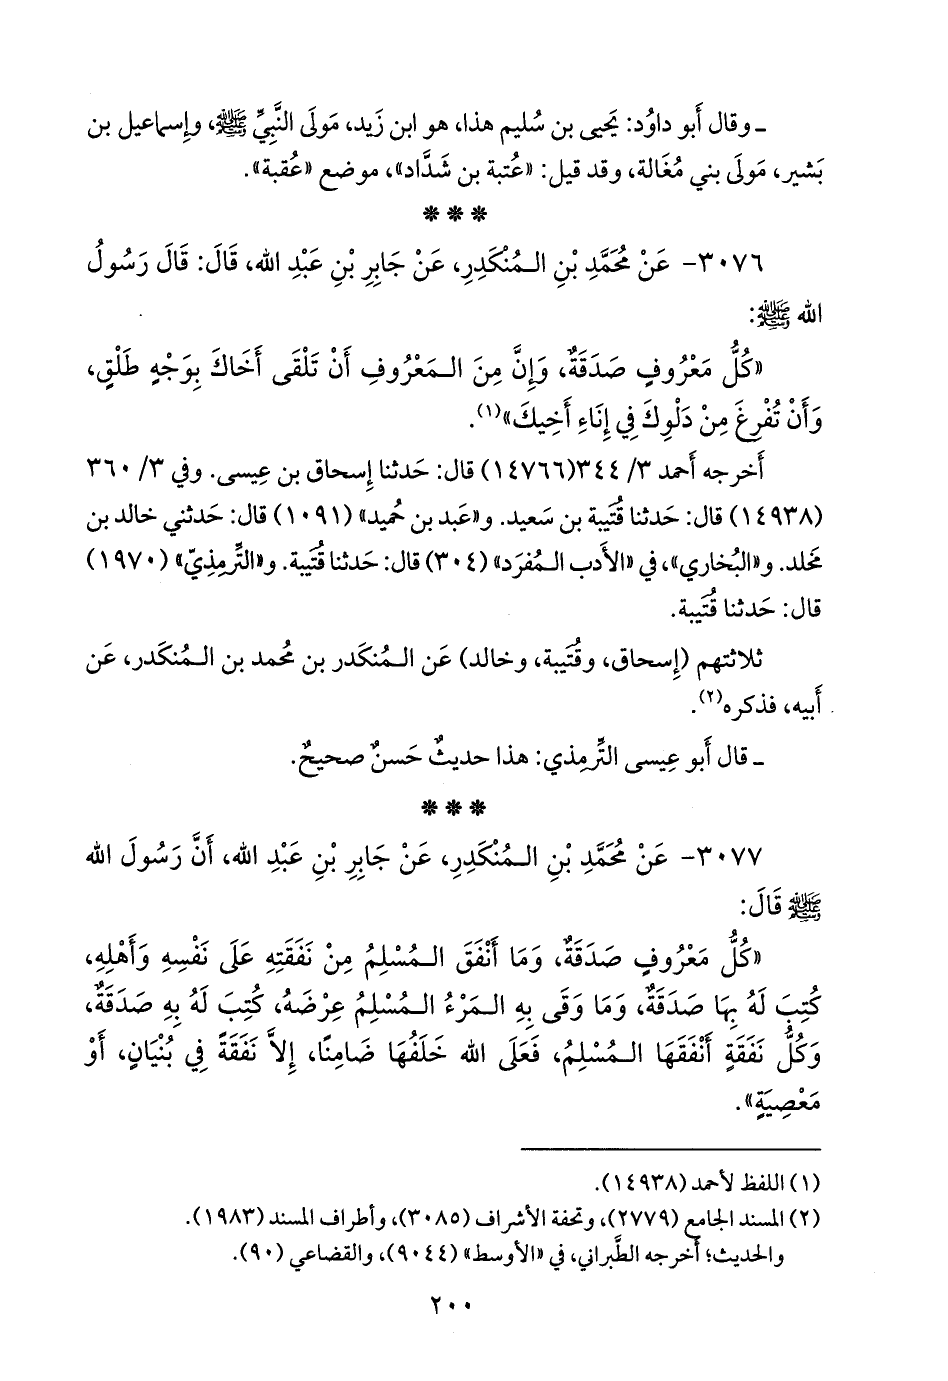 ـ وقال أَبو داوُد: يَحيى بن سُليم هذا، هو ابن زَيد، مَولَى النَّبِيِّ ﷺ، وإِسماعيل بن
بَشير، مَولَى بني مُغَالة، وقد قيل: «عُتبة بن شَدَّاد»، موضع «عُقبة».
***
٣٠٧٦- عَنْ مُحَمَّدِ بْنِ الـمُنْكَدِرِ، عَنْ جَابِرِ بْنِ عَبْدِ الله، قَالَ: قَالَ رَسُولُ
الله ﷺ:
«كُلُّ مَعْرُوفٍ صَدَقَةٌ، وَإِنَّ مِنَ الـمَعْرُوفِ أَنْ تَلْقَى أَخَاكَ بِوَجْهٍ طَلْقٍ،
وَأَنْ تُفْرِغَ مِنْ دَلْوِكَ فِي إِنَاءِ أَخِيكَ»(١).
أَخرجه أَحمد ٣/ ٣٤٤(١٤٧٦٦) قال: حَدثنا إِسحاق بن عِيسى. وفي ٣/ ٣٦٠
(١٤٩٣٨) قال: حَدثنا قُتَيبة بن سَعيد. و«عَبد بن حُميد» (١٠٩١) قال: حَدثني خالد بن
مخلد. و«البُخاري»، في «الأَدب الـمُفرَد» (٣٠٤) قال: حَدثنا قُتَيبة. و«التِّرمِذيّ» (١٩٧٠)
قال: حَدثنا قُتَيبة.
ثلاثتهم (إِسحاق، وقُتَيبة، وخالد) عَن الـمُنكَدر بن مُحمد بن الـمُنكَدر، عَن
أَبيه، فذكره(٢).
ـ قال أَبو عِيسى التِّرمِذي: هذا حديثٌ حَسنٌ صحيحٌ.
***
٣٠٧٧- عَنْ مُحَمَّدِ بْنِ الـمُنْكَدِرِ، عَنْ جَابِرِ بْنِ عَبْدِ الله، أَنَّ رَسُولَ الله
ﷺ قَالَ:
«كُلُّ مَعْرُوفٍ صَدَقَةٌ، وَمَا أَنْفَقَ الـمُسْلِمُ مِنْ نَفَقَتِهِ عَلَى نَفْسِهِ وَأَهْلِهِ،
كُتِبَ لَهُ بِهَا صَدَقَةٌ، وَمَا وَقَى بِهِ الـمَرْءُ الـمُسْلِمُ عِرْضَهُ، كُتِبَ لَهُ بِهِ صَدَقَةٌ،
وَكُلُّ نَفَقَةٍ أَنْفَقَهَا الـمُسْلِمُ، فَعَلَى الله خَلَفُهَا ضَامِنًا، إِلاَّ نَفَقَةً فِي بُنْيَانٍ، أَوْ
مَعْصِيَةٍ».
(١) اللفظ لأحمد (١٤٩٣٨).
(٢) المسند الجامع (٢٧٧٩)، وتحفة الأشراف (٣٠٨٥)، وأطراف المسند (١٩٨٣).
والحديث؛ أخرجه الطَّبراني، في «الأوسط» (٩٠٤٤)، والقضاعي (٩٠).
٢٠٠